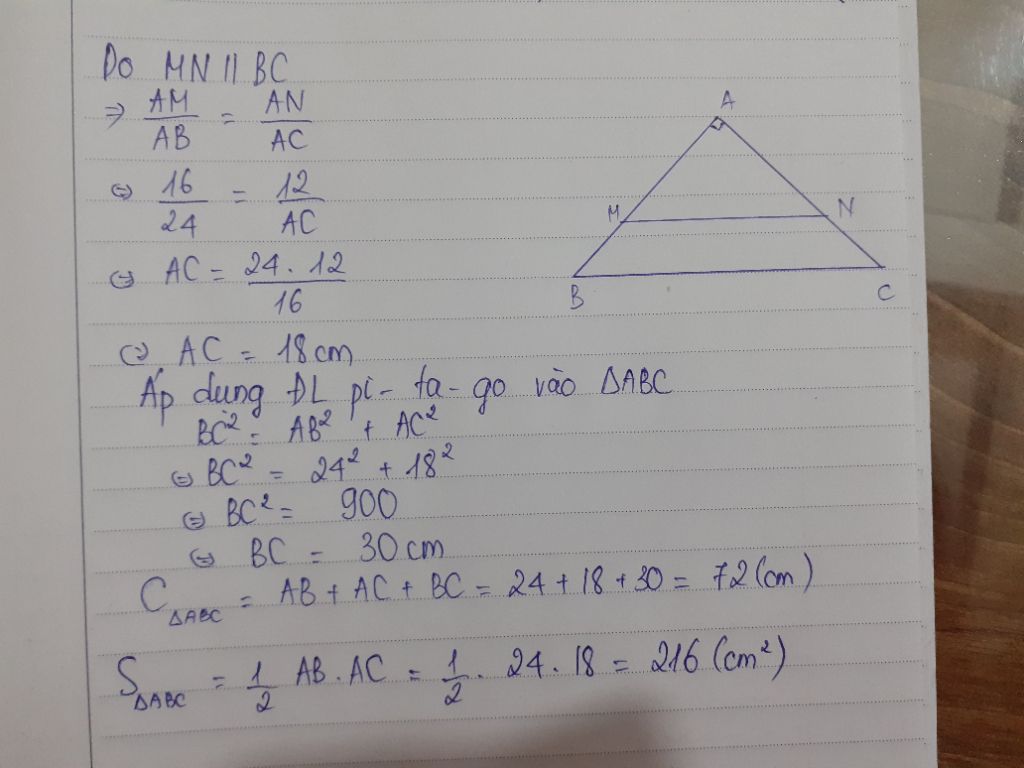 Do MN || BC
⇒ AM/AB = AN/AC
⇔ 16/24 = 12/AC
⇔ AC = 24 . 12/16
⇔ AC = 18 cm
Áp dụng ĐL pi-ta-go vào ΔABC
BC² = AB² + AC²
⇔ BC² = 24² + 18²
⇔ BC² = 900
⇔ BC = 30 cm
C ΔABC = AB + AC + BC = 24 + 18 + 30 = 72 (cm)
S ΔABC = 1/2 AB . AC = 1/2 . 24 . 18 = 216 (cm²)
A
M
N
B
C